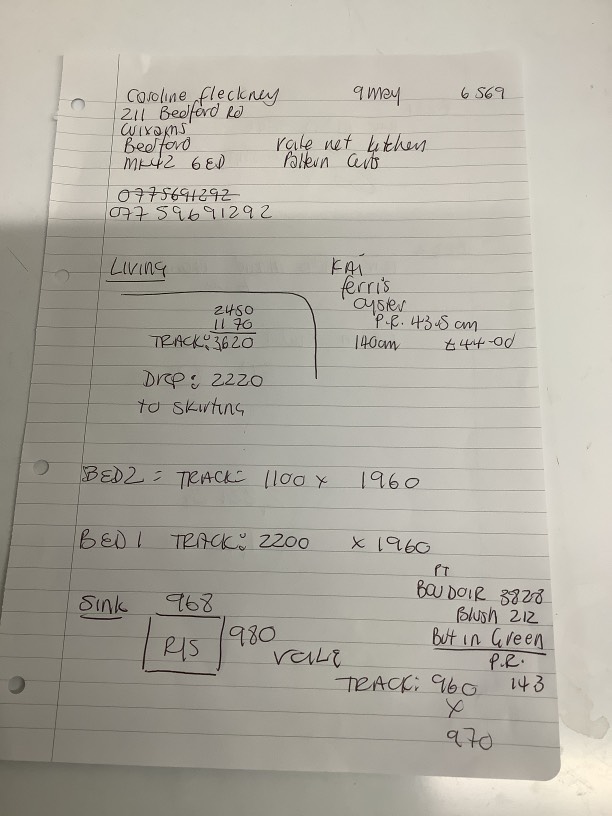 Caroline Fleckney 9 May 6569
211 Bedford Rd
Wixams
Bedford Vale net kitchen
MK42 6ED Pattern Cuts
0775691292
07759691292
LIVING KAI
ferris
oyster
2450 P.R. 43.5 cm
1170 140cm £44-00
TRACK: 3620
Drop: 2220
to skirting
BED 2 = TRACK: 1100 x 1960
BED 1 TRACK: 2200 x 1960
PT
BOUDOIR 3828
Sink 968 Blush 212
R/S 980 But in Green
VALE P.R.
TRACK: 960 143
x
970